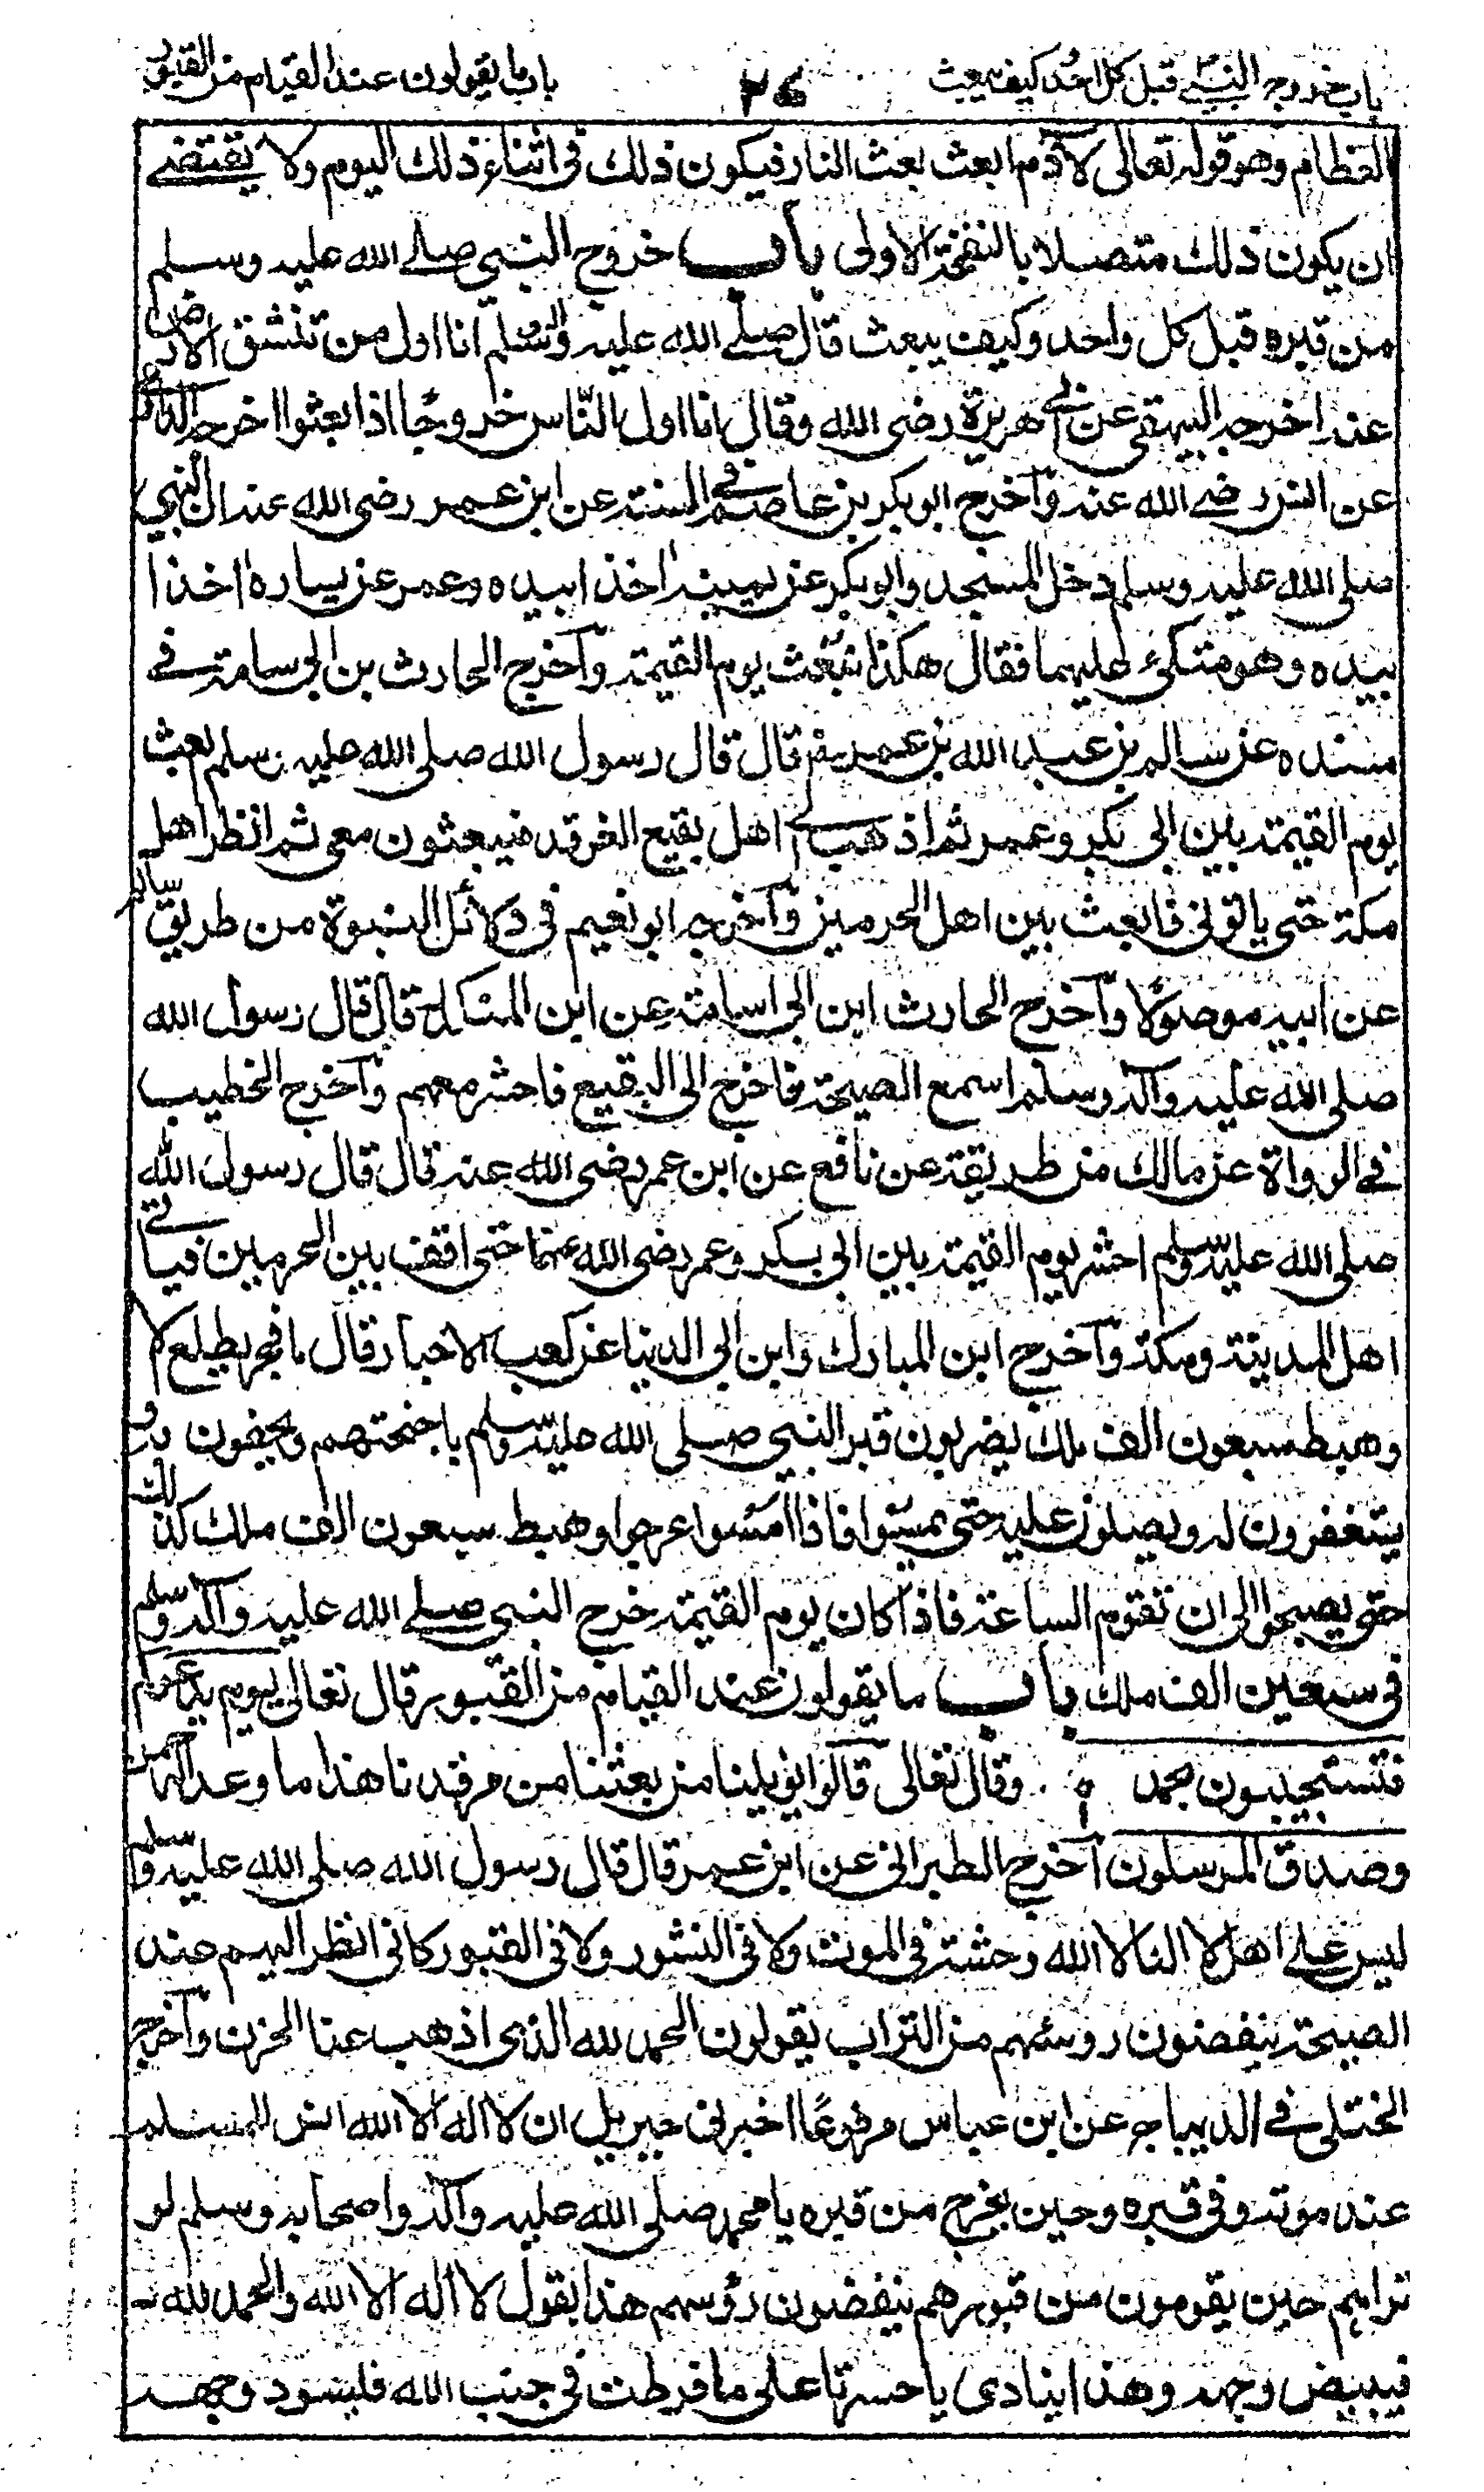 باب خروج النبي قبل كل احد كيف يبعث
٢٤
باب ما يقولون عند القيام من القبور
العظام وهو قوله تعالى لآدم ابعث بعث النار فيكون ذلك فى اثناء ذلك اليوم ولا يقتضے
ان يكون ذلك متصلا بالنفخة الاولى باب خروج النبي صلے الله عليه وسلم
من قبره قبل كل واحد وكيف يبعث قال صلے الله عليه وآله وسلم انا اول من تنشق الارض
عنه اخرجه البيهقى عن ابے هريرة رضى الله وقال انا اول النّاس خروجًا اذا بعثوا اخرجه الدارمى
عن انس رضے الله عنه وآخرج ابو بكر بن عاصم فے السنة عن ابن عمر رضى الله عنه ان النبي
صلى الله عليه وسلم دخل المسجد وابو بكر عن يمينه اخذا بيده وعمر عن يساره اخذا
بيده وهو متكئ عليهما فقال هكذا نبعث يوم القيمة وآخرج الحارث بن ابى سامة فے
مسنده عن سالم بن عبد الله بن عمر قال قال رسول الله صلى الله عليه وسلم ابعث
يوم القيمة بين ابى بكر وعمر ثم اذهب الے اهل بقيع الغرقد فيبعثون معى ثم انظر اهل
مكة حتى ياتونى فابعث بين اهل الحرمين وآخرجه ابو نعيم فى دلائل النبوة من طريق سالم
عن ابيه موصولًا وآخرج الحارث ابن ابى اسامة عن ابن المنكدر قال قال رسول الله
صلى الله عليه وآله وسلم اسمع الصيحة فاخرج الى البقيع فاحشر معهم وآخرج الخطيب
فے الرواة عن مالك من طريقة عن نافع عن ابن عمر رضى الله عنه قال قال رسول الله
صلى الله عليه وسلم احشر يوم القيمة بين ابى بكر وعمر رضى الله عنهما حتى اقف بين الحرمين فياتے
اهل المدينة ومكة وآخرج ابن المبارك وابن ابى الدنيا عن كعب الاحبار قال ما فجر يطلع الا
وهبط سبعون الف ملك يضربون قبر النبي صلى الله عليه وسلم باجنحتهم ويحفون به و
يستغفرون له ويصلون عليه حتى يمسوا فاذا امسوا عرجوا وهبط سبعون الف ملك كذلك
حتى يصبحوا الى ان تقوم الساعة فاذا كان يوم القيمة خرج النبي صلے الله عليه وآله وسلم
فى سبعين الف ملك باب ما يقولون عند القيام من القبور قال تعالى يوم يدعوكم
فتستجيبون بحمده وقال تعالى قالوا يويلنا من بعثنا من مرقدنا هذا ما وعد الرحمن
وصدق المرسلون آخرج الطبرانى عن ابن عمر قال قال رسول الله صلى الله عليه وسلم
ليس علے اهل لا اله الا الله وحشة فى الموت ولا فى النشور ولا فى القبور كانى انظر اليهم عند
الصيحة ينفضون روسهم من التراب يقولون الحمد لله الذى اذهب عنا الحزن وآخرج
الختلى فے الديباج عن ابن عباس مرفوعًا اخبرنى جبريل ان لا اله الا الله انس للمسلم
عند موته وفى قبره وحين يخرج من قبره يا محمد صلى الله عليه وآله واصحابه وسلم لو
تراهم حين يقومون من قبورهم ينفضون رؤسهم هذا يقول لا اله الا الله والحمد لله
فيبيض وجهه وهذا ينادى يا حسرتا على ما فرطت فى جنب الله فليسود وجهه